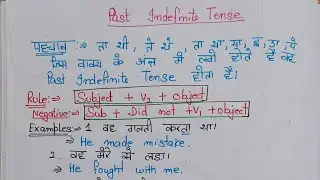 Past Indefinite Tense
पहचान :→ ता थी, ते थे, ता था, या, इ, ई, ये
जिस वाक्य के अन्त में लगी होते हैं वह
Past Indefinite Tense होता है।
Rule:⇒ Subject + V₂ + object
Negative:⇒ Sub + Did not + V₁ + object
Examples:→ 1 वह गलती करता था।
⇒ He made mistake.
2. वह मेरे से लड़ा।
⇒ He fought with me.